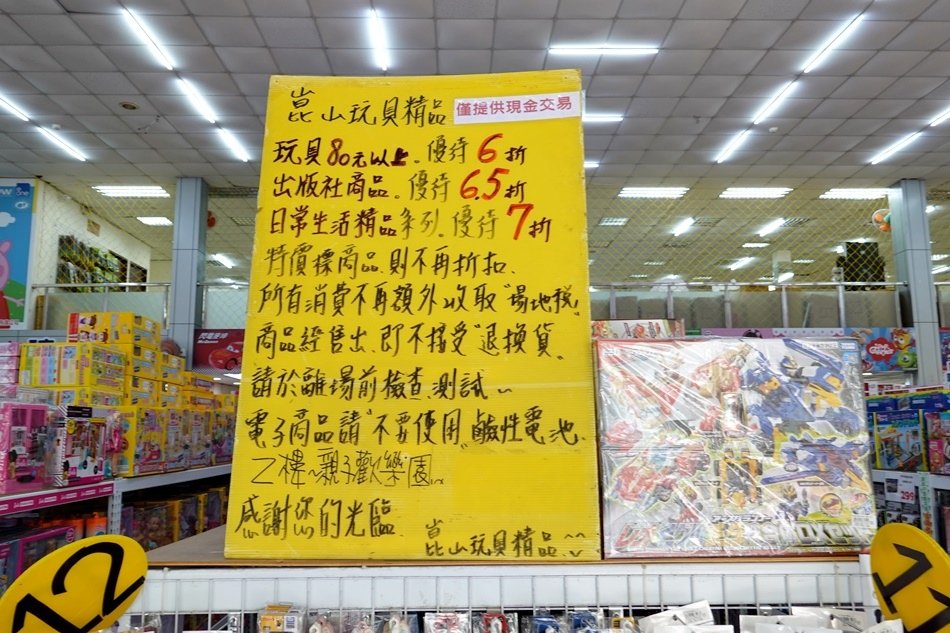 崑山玩具精品
僅提供現金交易
玩具80元以上。優待6折
出版社商品。優待6.5折
日常生活精品系列。優待7折
特價標商品.則不再折扣.
所有消費不再額外收取"場地稅"
商品經售出.即不接受"退換貨"。
請於離場前檢查.測試~
電子商品請"不要使用"鹼性電池.
乙樓~親子歡樂園...
感謝您的光臨.
崑山玩具精品..
12
299